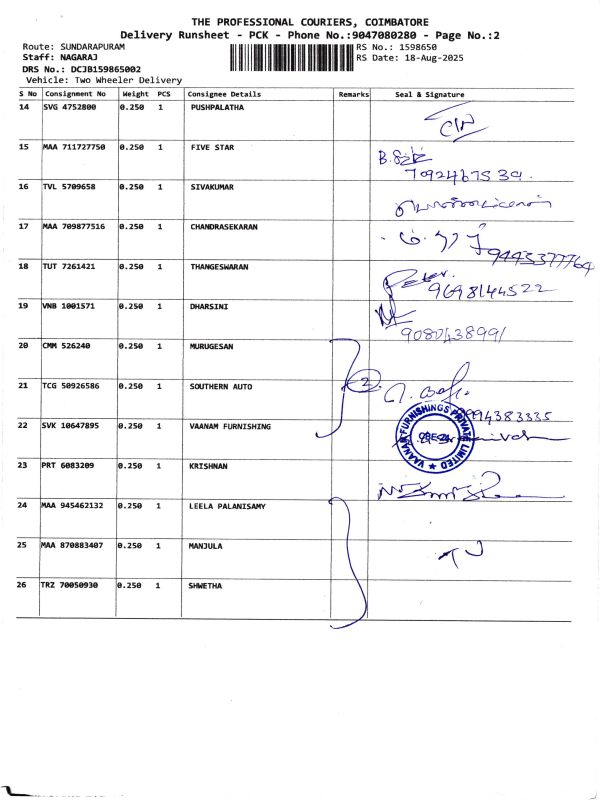 THE PROFESSIONAL COURIERS, COIMBATORE
Delivery Runsheet - PCK - Phone No.:9047080280 - Page No.:2
Route: SUNDARAPURAM RS No.: 1598650
Staff: NAGARAJ RS Date: 18-Aug-2025
DRS No.: DCJB159865002
Vehicle: Two Wheeler Delivery
S No Consignment No Weight PCS Consignee Details Remarks Seal & Signature
14 SVG 4752800 0.250 1 PUSHPALATHA
15 MAA 711727750 0.250 1 FIVE STAR
7092467539.
16 TVL 5709658 0.250 1 SIVAKUMAR
17 MAA 709877516 0.250 1 CHANDRASEKARAN
9443377764
18 TUT 7261421 0.250 1 THANGESWARAN
9698144522
19 VNB 1001571 0.250 1 DHARSINI
9080438991
20 CMM 526240 0.250 1 MURUGESAN
21 TCG 50926586 0.250 1 SOUTHERN AUTO
2
9994383335
22 SVK 10647895 0.250 1 VAANAM FURNISHING
VAANAM FURNISHINGS PRIVATE LIMITED
23 PRT 6083209 0.250 1 KRISHNAN
24 MAA 945462132 0.250 1 LEELA PALANISAMY
25 MAA 870883407 0.250 1 MANJULA
26 TRZ 70050930 0.250 1 SHWETHA